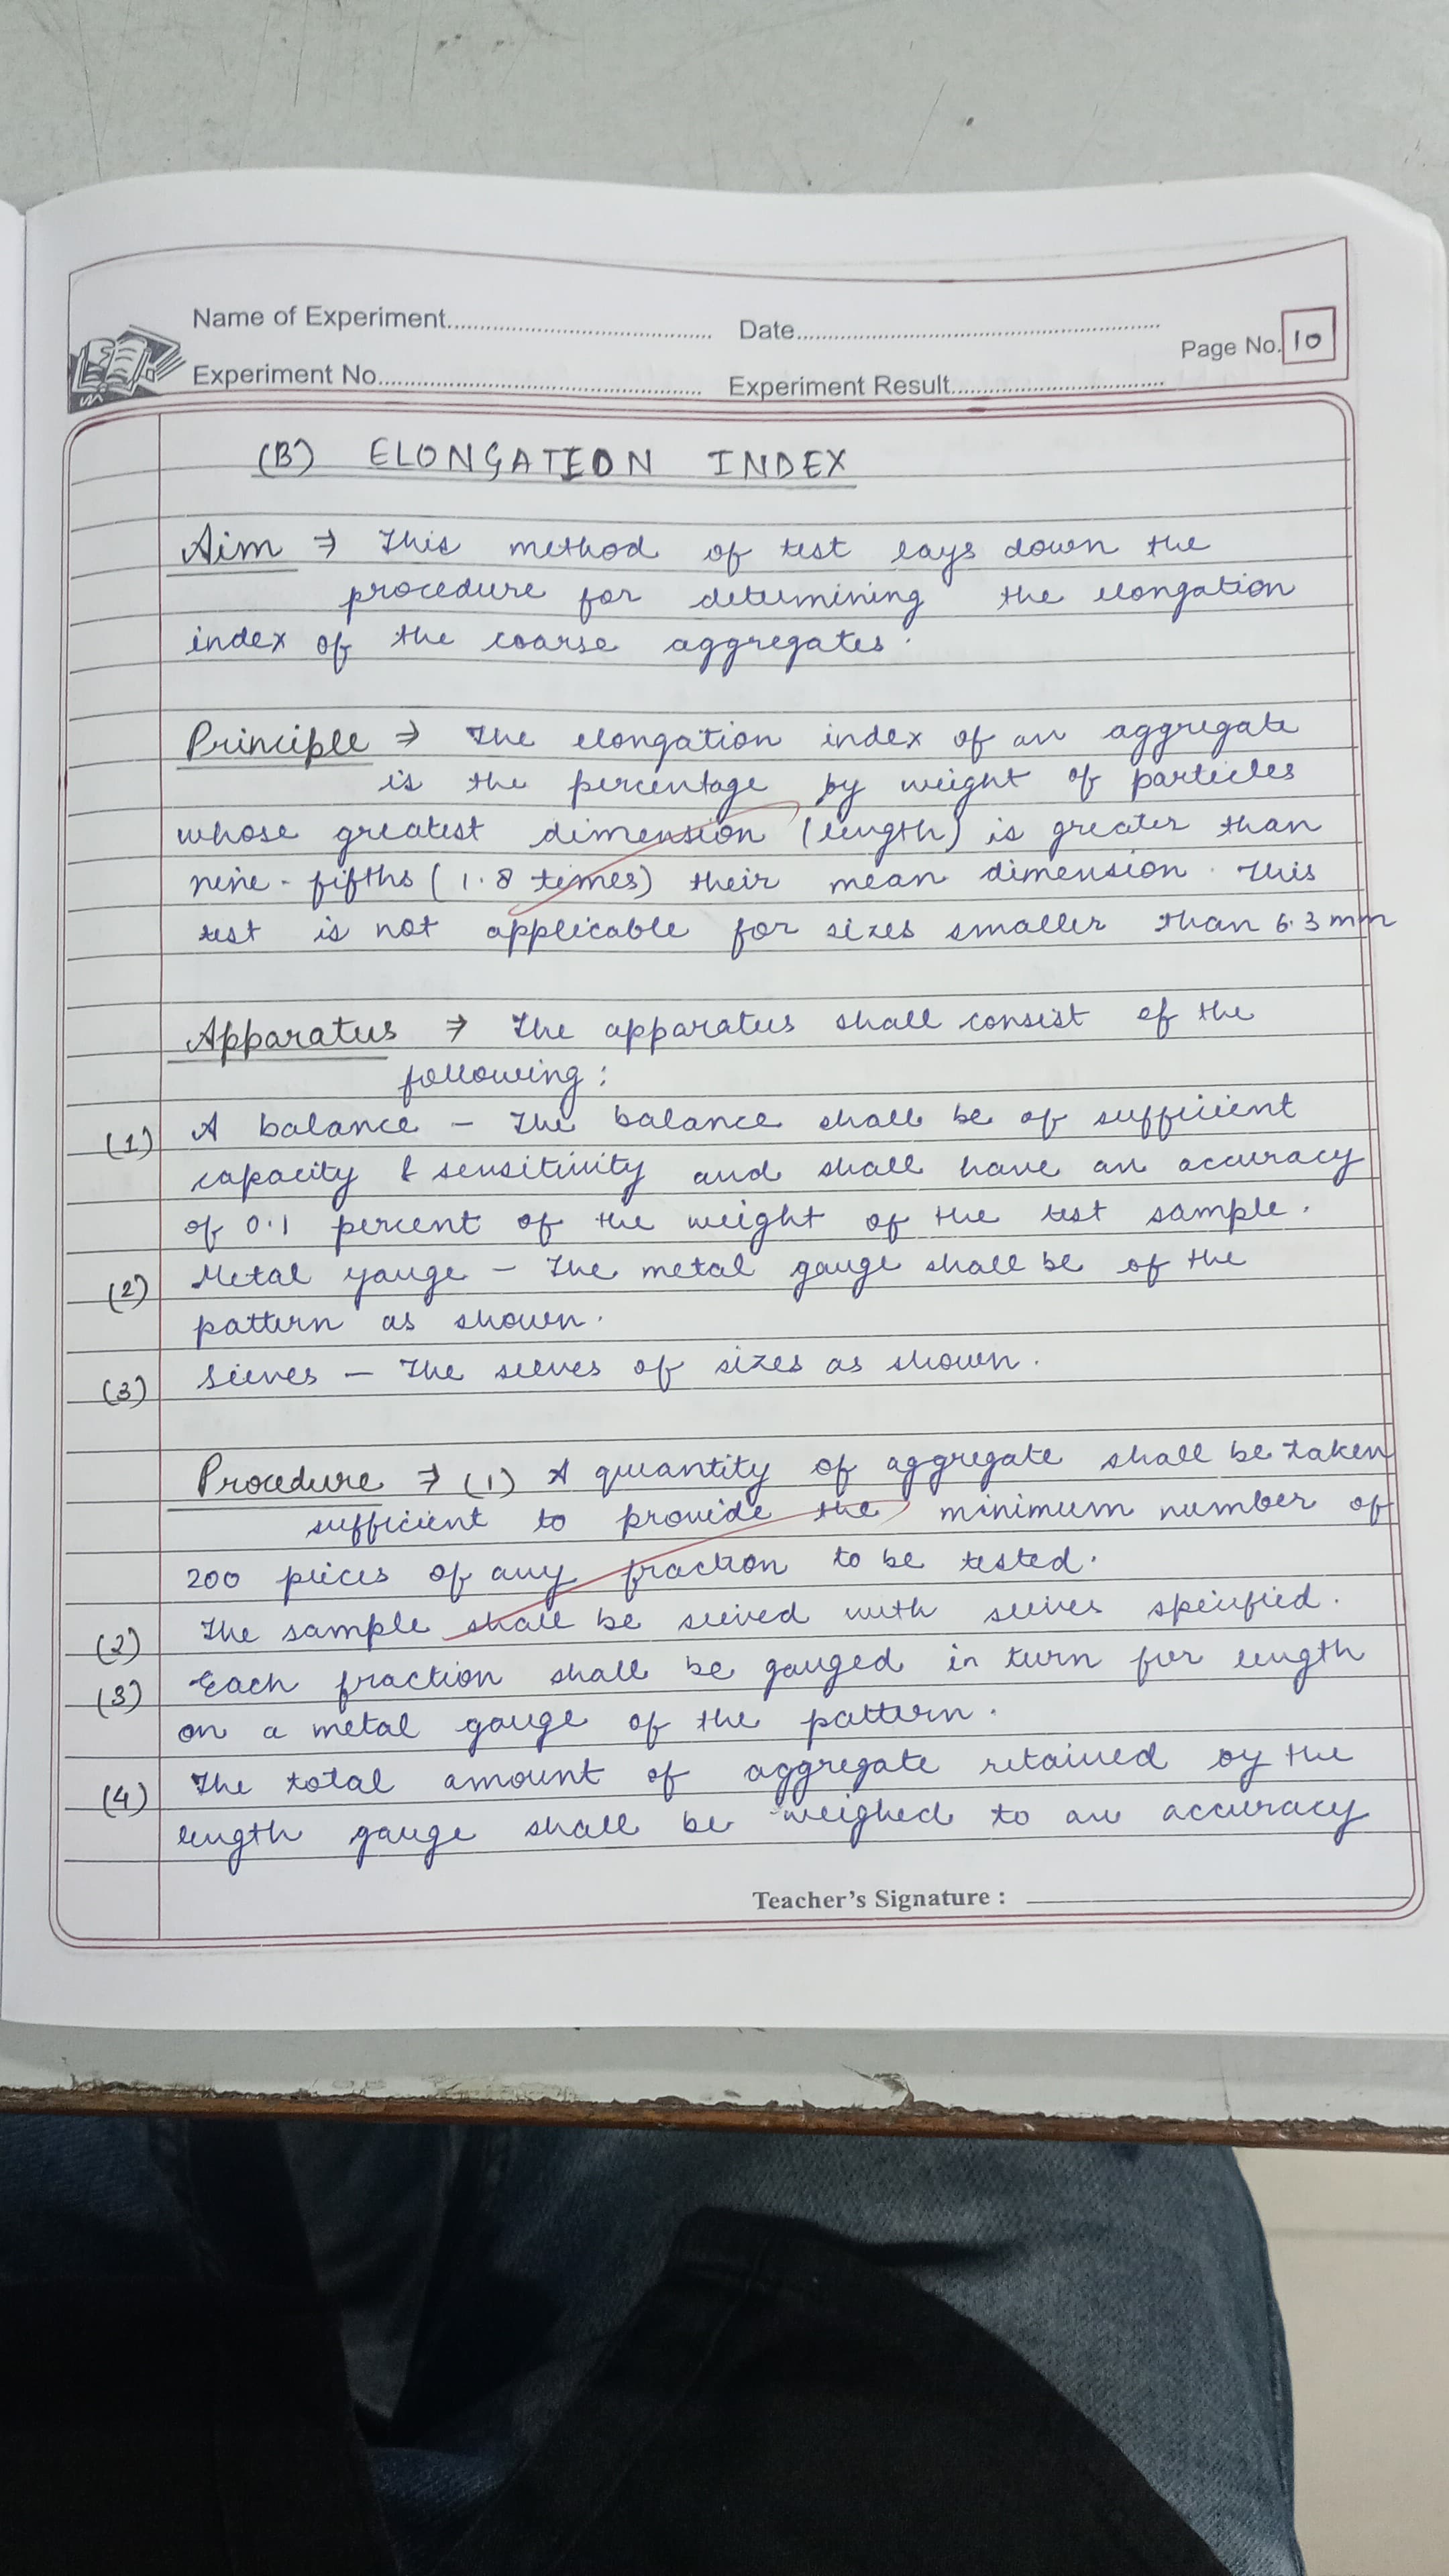 Name of Experiment.......... Date..........
Page No. 10
Experiment No.......... Experiment Result..........
(B) ELONGATION INDEX
Aim ⇒ This method of test lays down the
procedure for determining the elongation
index of the coarse aggregates.
Principle ⇒ The elongation index of an aggregate
is the percentage by weight of particles
whose greatest dimension (length) is greater than
nine-fifths (1.8 times) their mean dimension. This
test is not applicable for sizes smaller than 6.3 mm
Apparatus ⇒ The apparatus shall consist of the
following:
(1) A balance - The balance shall be of sufficient
capacity & sensitivity and shall have an accuracy
of 0.1 percent of the weight of the test sample.
(2) Metal gauge - The metal gauge shall be of the
pattern as shown.
(3) Sieves - The sieves of sizes as shown.
Procedure ⇒ (1) A quantity of aggregate shall be taken
sufficient to provide the minimum number of
200 pieces of any fraction to be tested.
(2) The sample shall be sieved with sieves specified.
(3) Each fraction shall be gauged in turn for length
on a metal gauge of the pattern.
(4) The total amount of aggregate retained by the
length gauge shall be weighed to an accuracy
Teacher's Signature :